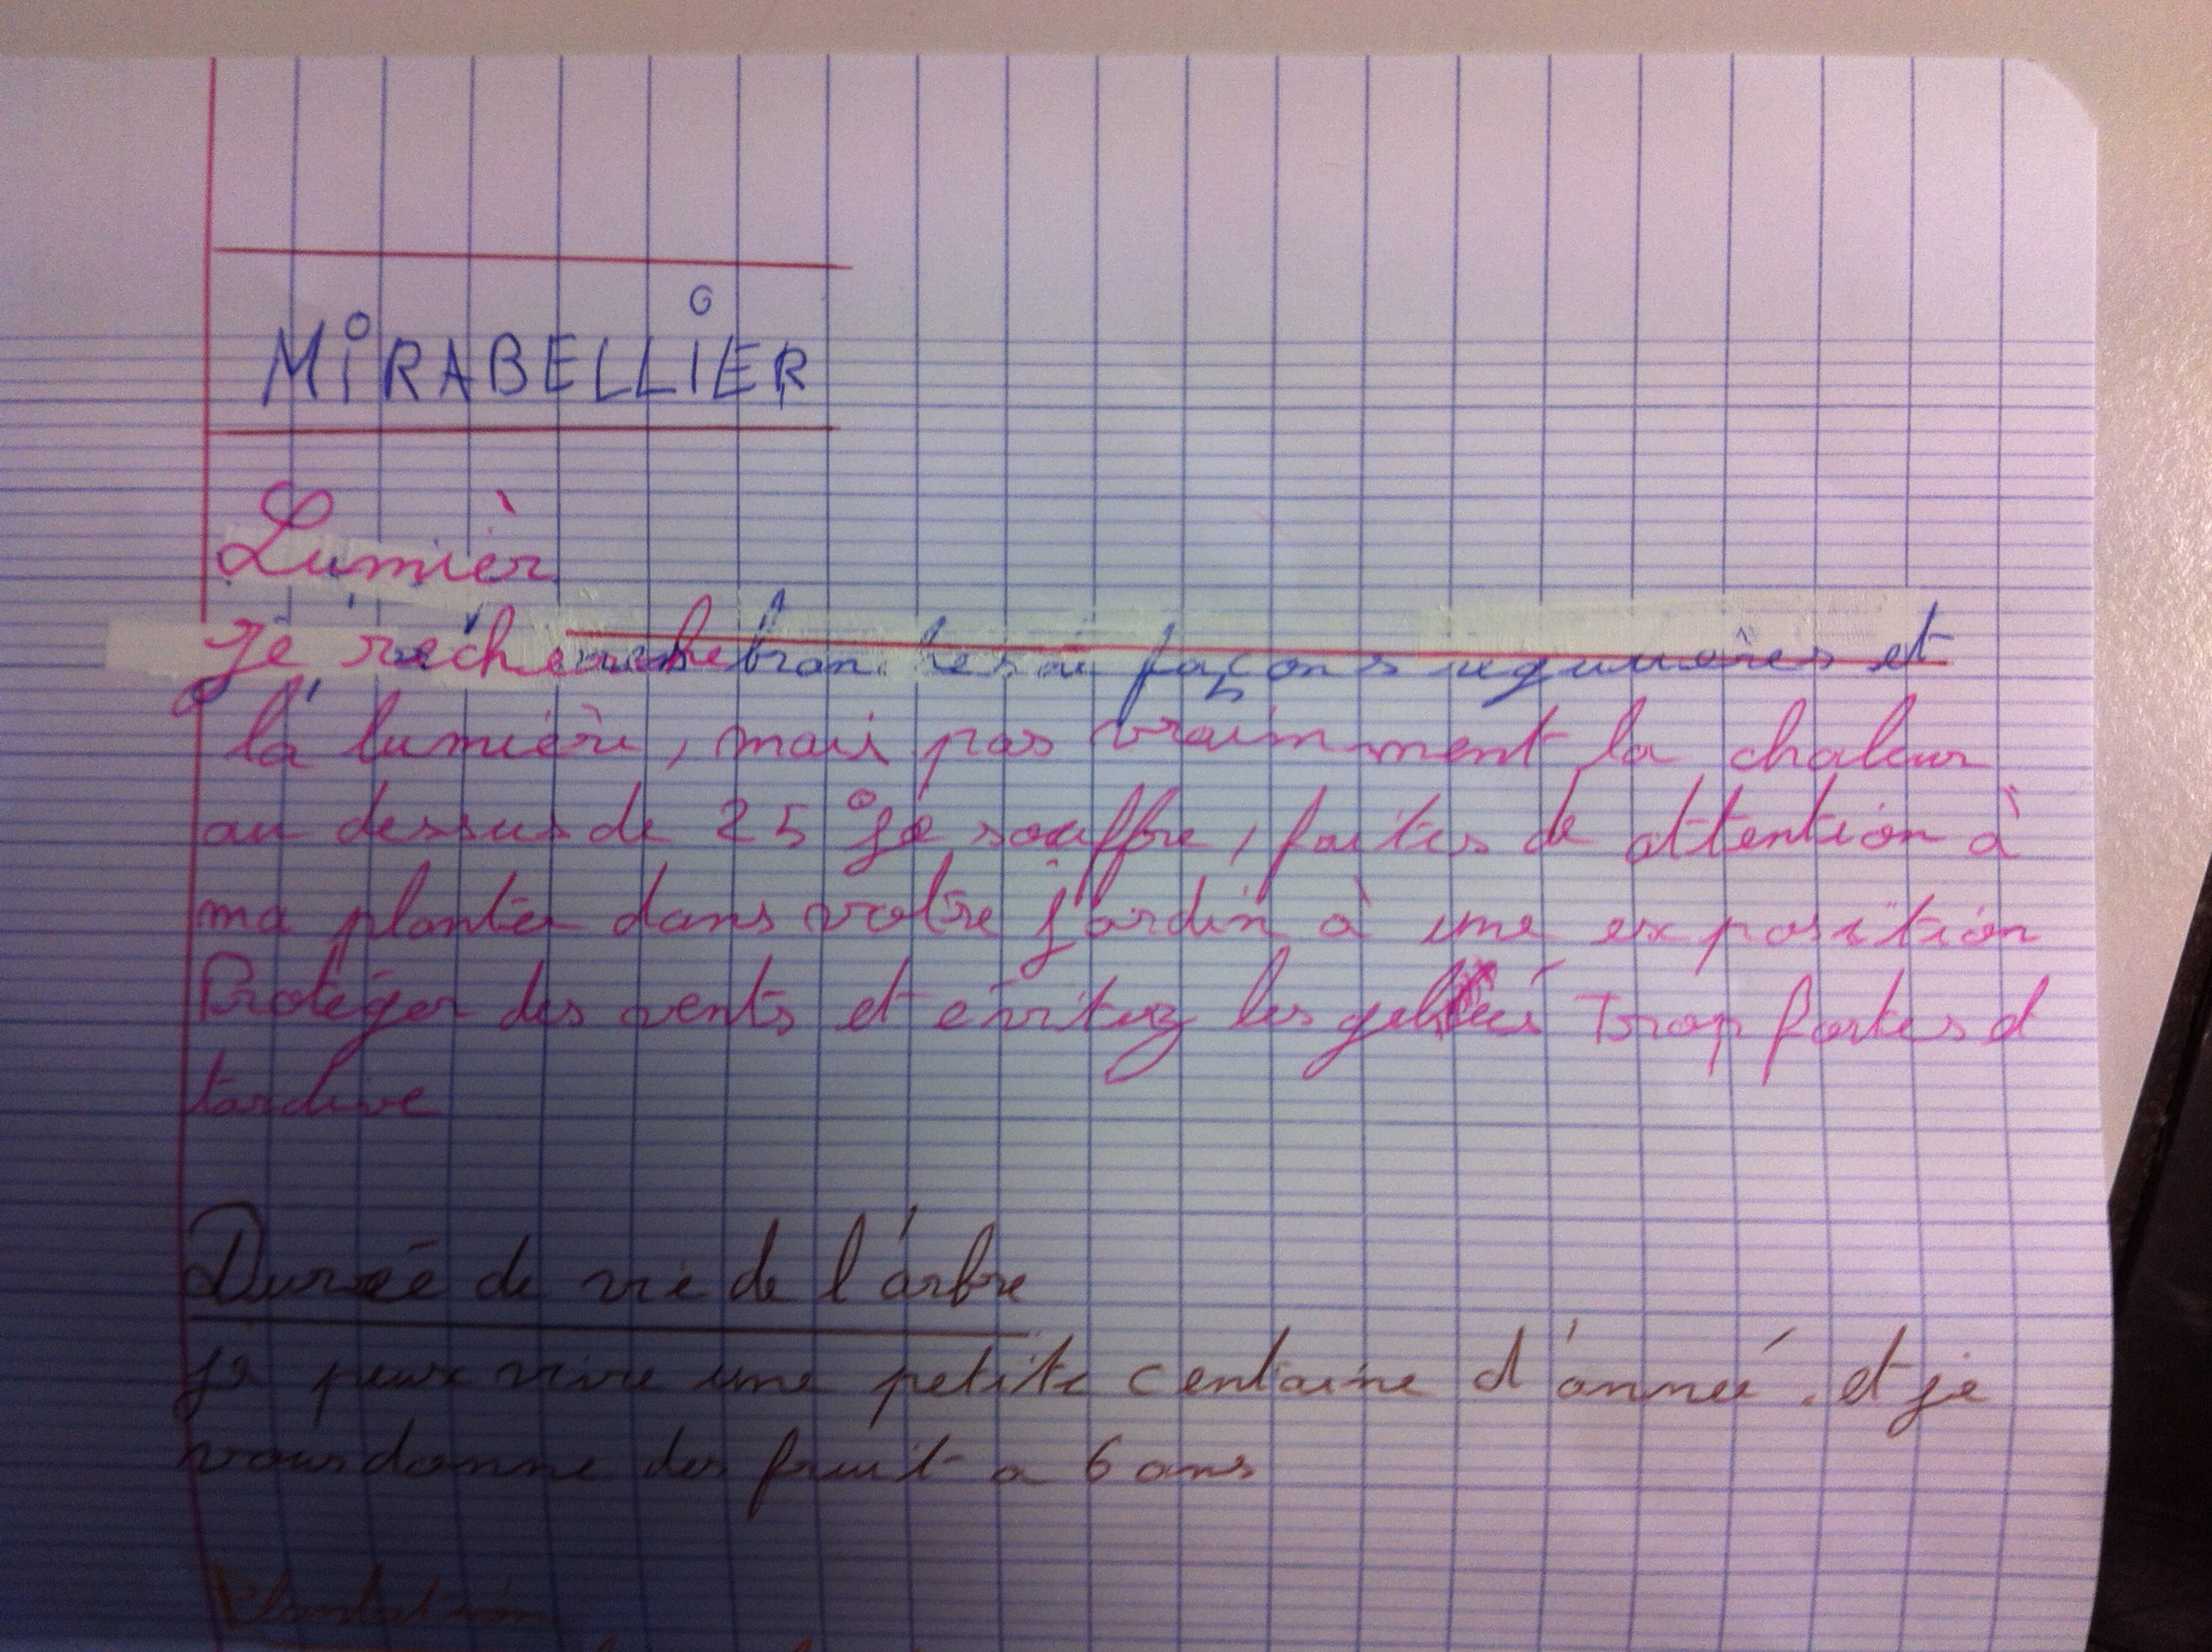 MiRABELLiER
Lumièr
Je recherche branches de façons régulières et
la lumière, mais pas vraimment la chaleur
au dessus de 25° je souffre, faites de attention à
ma planter dans votre jardin à une exposition
Protéger des vents et évitez les gelées trop fortes et
tardive
Durée de vie de l'arbre
je peux vivre une petite centaine d'année. et je
vous donne des fruit a 6 ans
Plantation